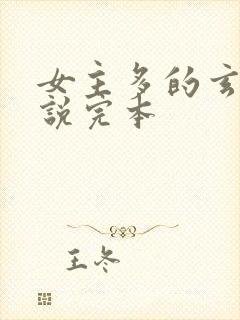 女主多的玄
說完本
王冬